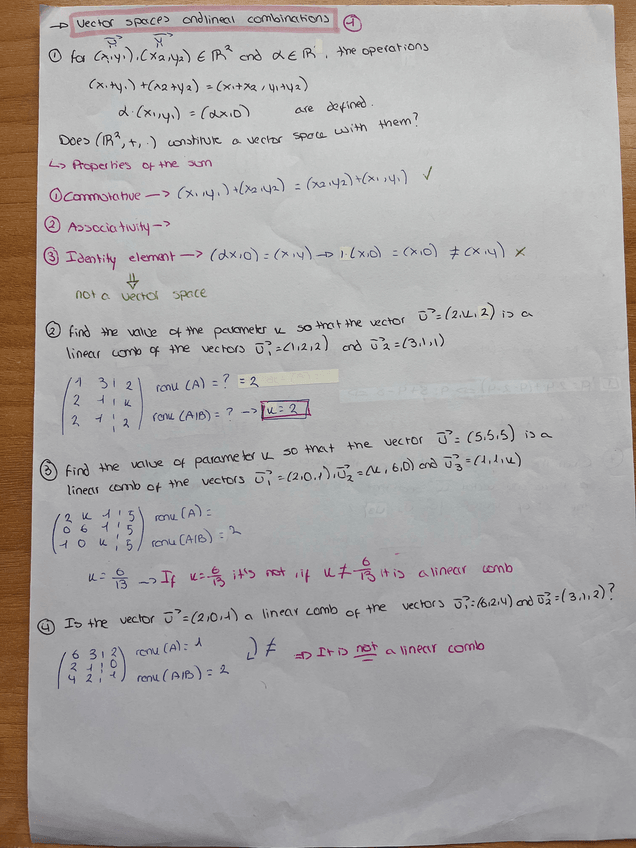 → Vector spaces and linear combinations ①
① for (x₁,y₁), (x₂,y₂) ∈ ℝ² and α ∈ ℝ, the operations
(x₁+y₁)+(x2+y2) = (x₁+x₂, y₁+y2)
α·(x₁,y₁) = (αx,0) are defined.
Does (ℝ², +, ·) constitute a vector space with them?
↳ Properties of the sum
① Commutative → (x₁,y₁)+(x2,y2) = (x2,y2)+(x₁,y₁) ✓
② Associativity →
③ Identity element → (αx,0) = (x,y) → 1·(x,0) = (x,0) ≠ (x,y) ×
⇓
not a vector space
② find the value of the parameter k so that the vector v⃗=(2,k,2) is a
linear comb of the vectors v⃗₁=(1,2,2) and v⃗₂=(3,1,1)
1 3 ¦ 2 rank (A) = ? = 2
2 1 ¦ k
2 1 ¦ 2 rank (A|B) = ? → k = 2
③ find the value of parameter k so that the vector v⃗=(5,5,5) is a
linear comb of the vectors v⃗₁=(2,0,1), v⃗₂=(k,6,0) and v⃗₃=(1,1,k)
2 k 1 ¦ 5 rank (A) =
0 6 1 ¦ 5
1 0 k ¦ 5 rank (A|B) = 2
k = 6/13 → If k=6/13 it's not, if k≠6/13 it is a linear comb
④ Is the vector v⃗=(2,0,1) a linear comb of the vectors v⃗₁=(6,2,4) and v⃗₂=(3,1,2)?
6 3 ¦ 2 rank (A) = 1
2 1 ¦ 0 ≠ ⇒ It is not a linear comb
4 2 ¦ 1 rank (A|B) = 2